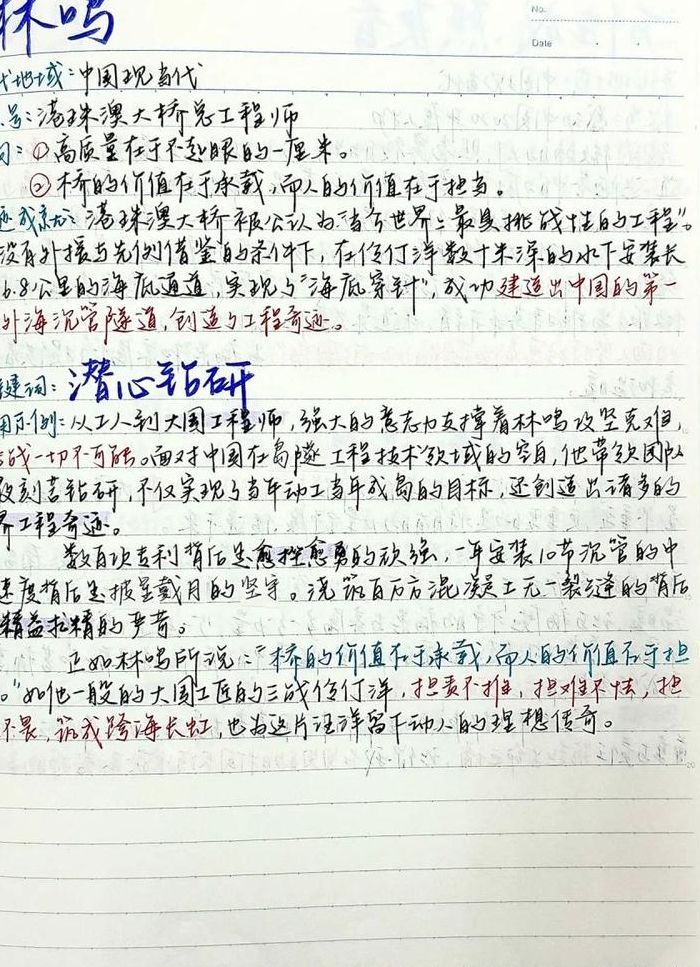 林鸣
No.
Date
代地域:中国现当代
号:港珠澳大桥总工程师
①高质量在于不起眼的一厘米。
②桥的价值在于承载,而人的价值在于担当。
迹成就:港珠澳大桥被公认为"当今世界上最具挑战性的工程"。
没有外援与先例借鉴的条件下,在伶仃洋数十米深的水下安装长
6.8公里的海底通道,实现了"海底穿针",成功建造出中国的第一
外海沉管隧道,创造了工程奇迹。
键词:潜心钻研
用示例:从工人到大国工程师,强大的意志力支撑着林鸣攻坚克难,
战一切不可能。面对中国在岛隧工程技术领域的空白,他带领团队
刻苦钻研,不仅实现了当年动工当年成岛的目标,还创造出诸多的
界工程奇迹。
数百项专利背后是愈挫愈勇的顽强,一年安装10节沉管的中
速度背后是披星戴月的坚守。浇筑百万方混凝土无一裂缝的背后
精益求精的严苛。
正如林鸣所说:"桥的价值在于承载,而人的价值在于担
。"如他一般的大国工匠的三战伶仃洋,担责不推,担难不怯,担
不畏,筑成跨海长虹,也为这片汪洋留下动人的理想传奇。